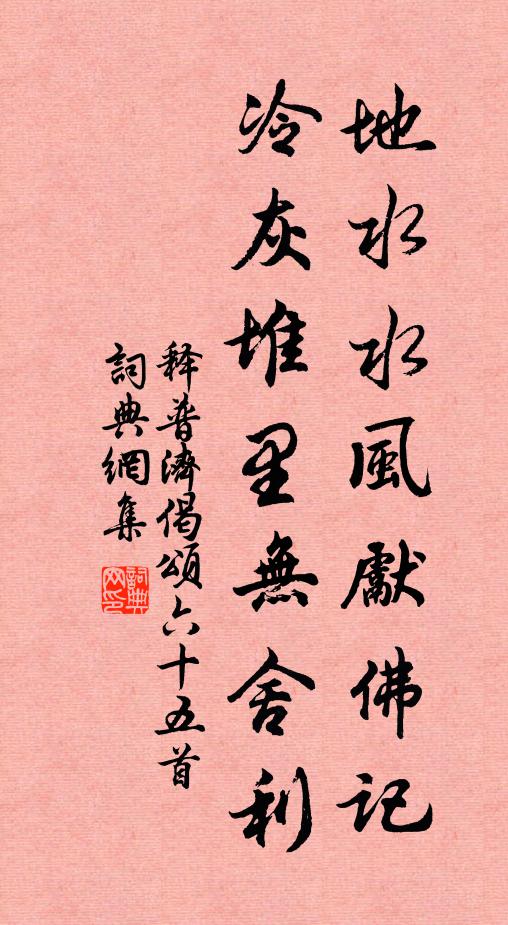 地水水風獻佛記
冷灰堆里無舍利
释普濟偈頌六十五首
詞典網集
詞典网印